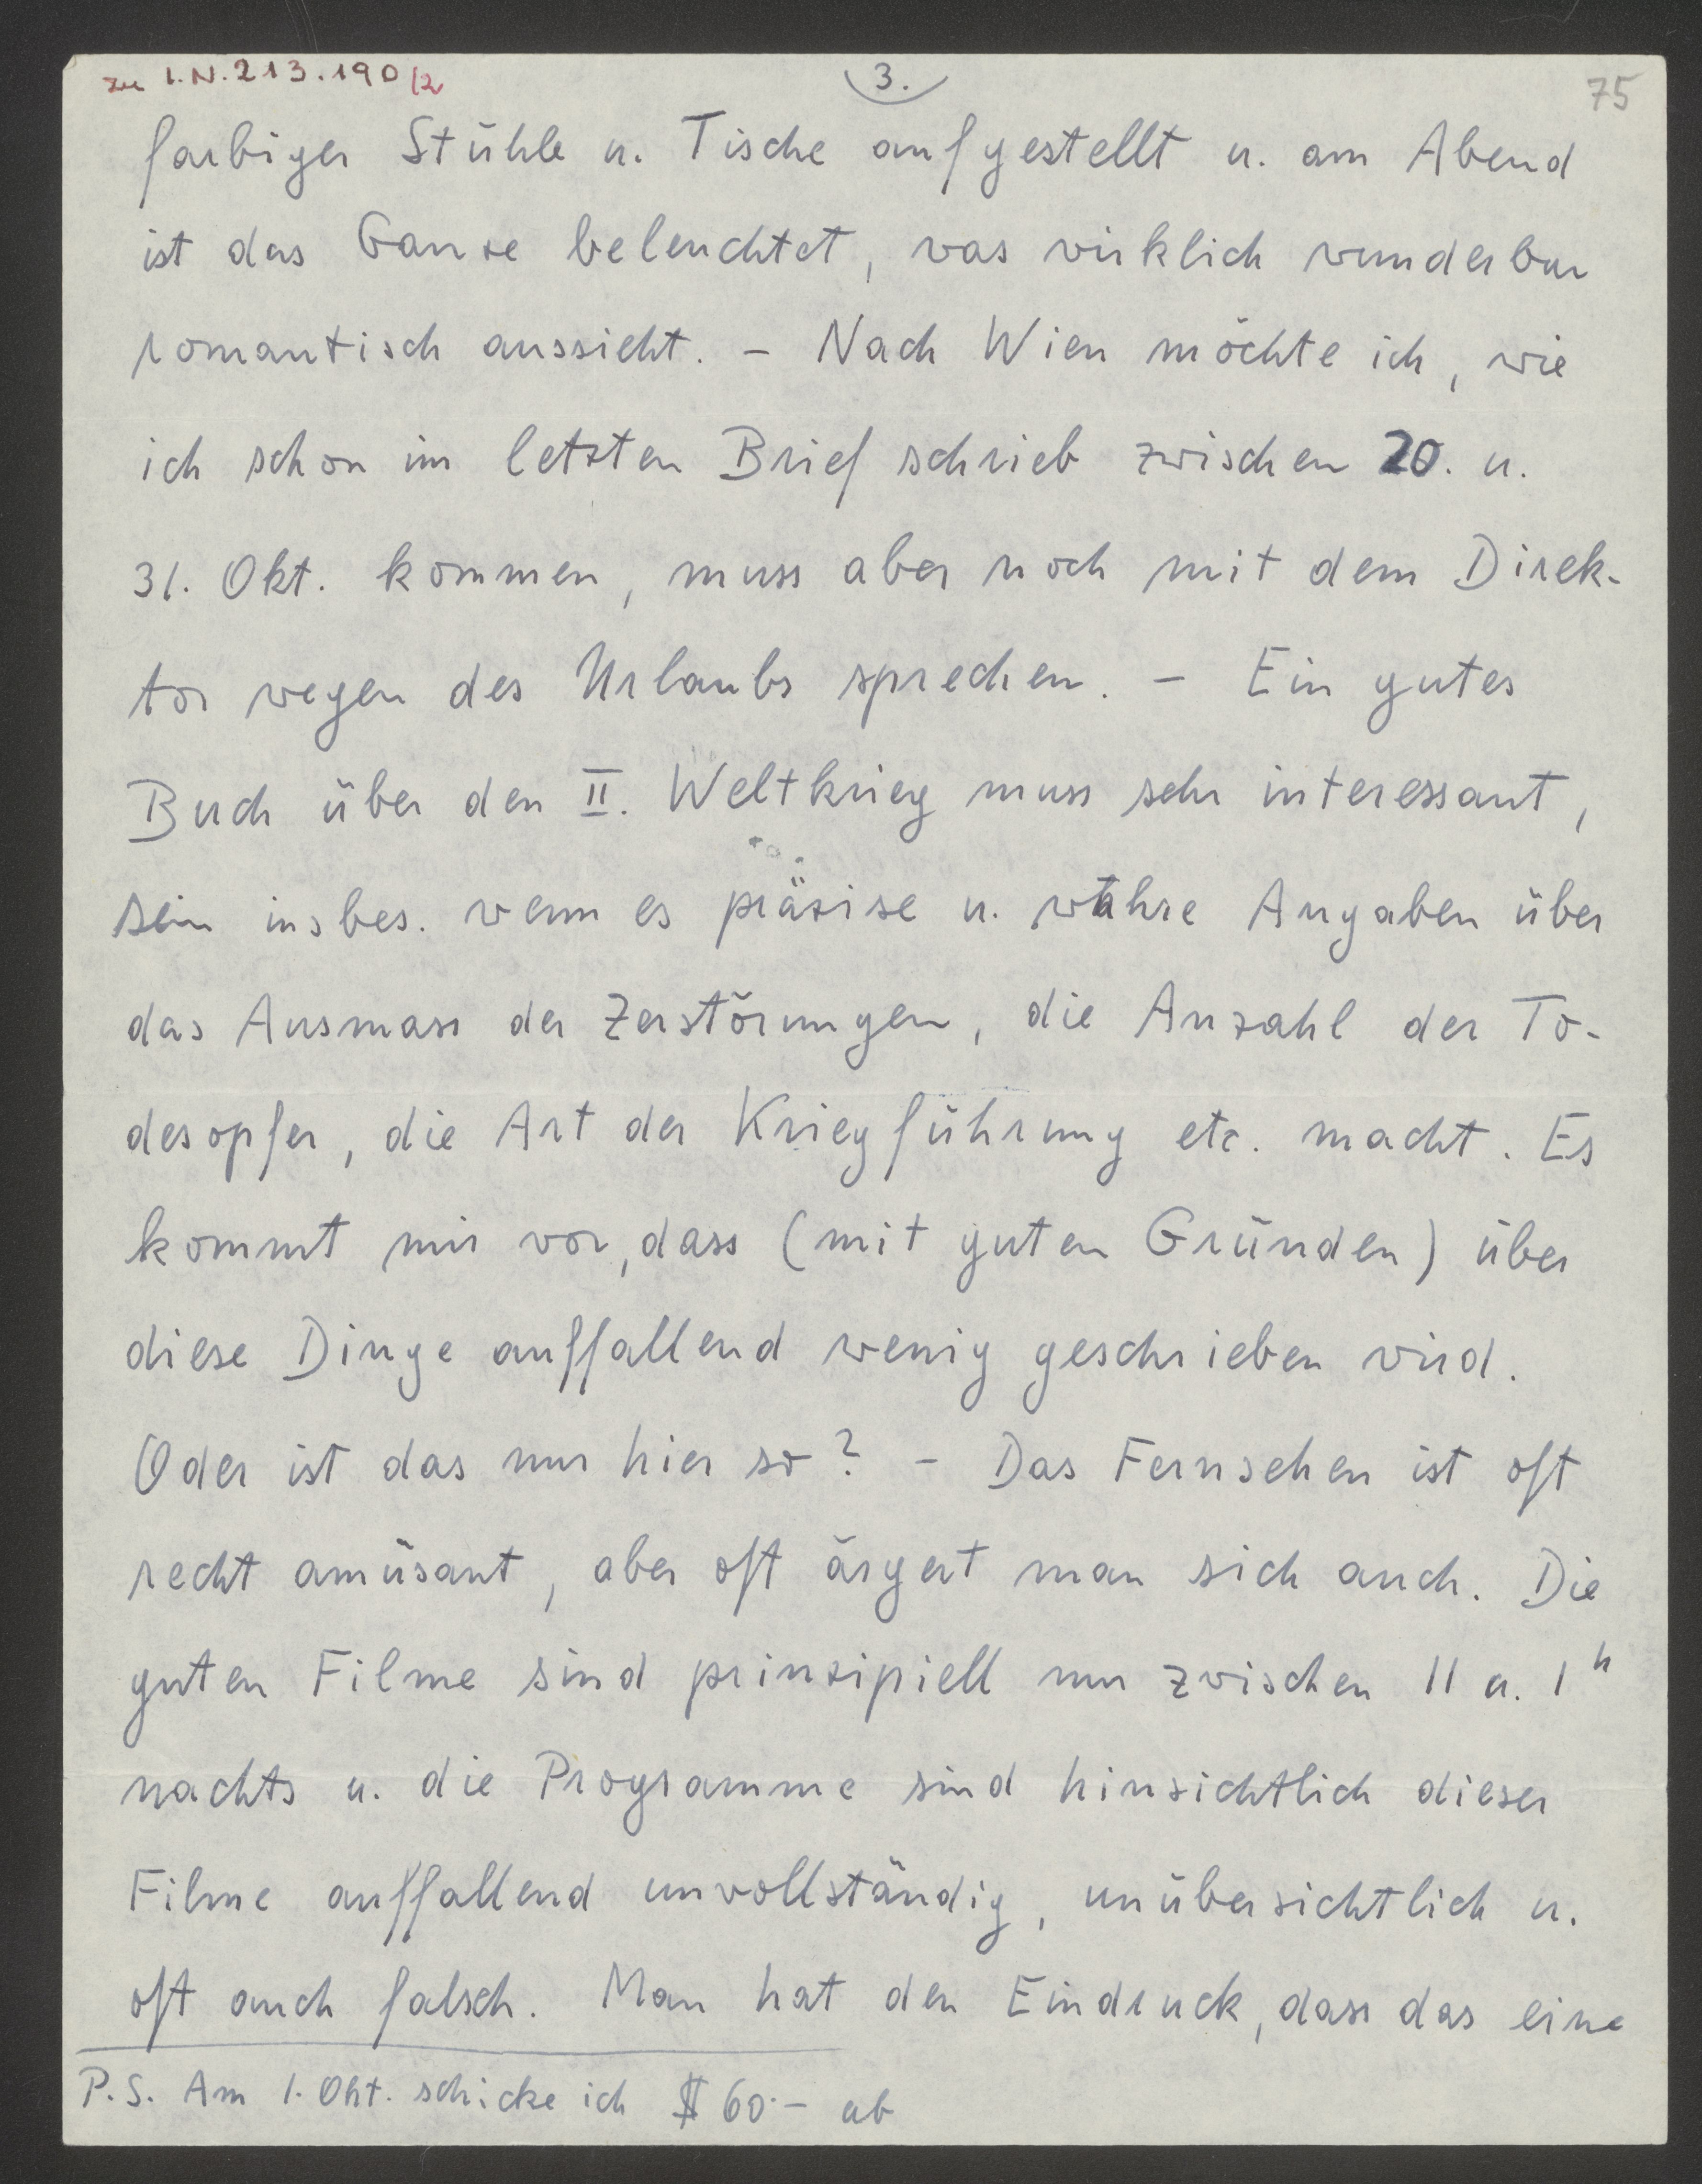 zu I.N. 213.190/2
3.
75
farbiger Stühle u. Tische aufgestellt u. am Abend
ist das Ganze beleuchtet, was wirklich wunderbar
romantisch aussieht. – Nach Wien möchte ich, wie
ich schon im letzten Brief schrieb zwischen 20. u.
31. Okt. kommen, muss aber noch mit dem Direk-
tor wegen des Urlaubs sprechen. – Ein gutes
Buch über den II. Weltkrieg muss sehr interessant,
sein insbes. wenn es präzise u. wahre Angaben über
das Ausmass der Zerstörungen, die Anzahl der To-
desopfer, die Art der Kriegführung etc. macht. Es
kommt mir vor, dass (mit guten Gründen) über
diese Dinge auffallend wenig geschrieben wird.
Oder ist das nur hier so? – Das Fernsehen ist oft
recht amüsant, aber oft ärgert man sich auch. Die
guten Filme sind prinzipiell nur zwischen 11 u. 1ʰ
nachts u. die Programme sind hinsichtlich dieser
Filme auffallend unvollständig, unübersichtlich u.
oft auch falsch. Man hat den Eindruck, dass das eine
P.S. Am 1. Okt. schicke ich $ 60.– ab